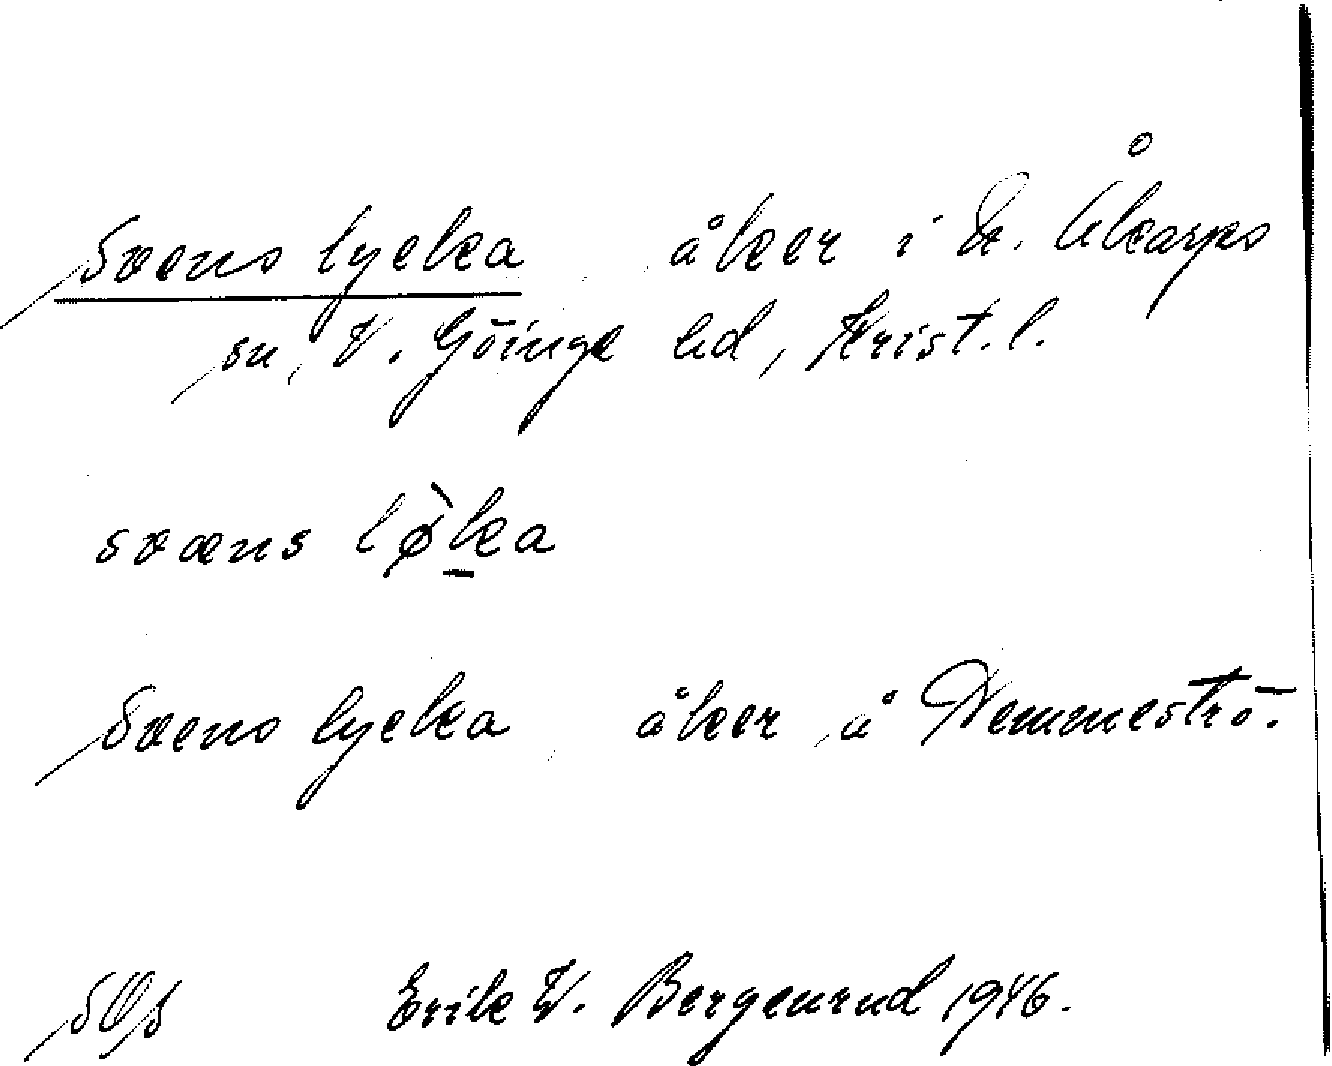 Svens lycka åker i N. Åkarps
sn, V. Göinge hd, Krist. l.
svæns lø̀ka
Svens lycka åker å Nemmeströ.
SOS Erik W. Bergenrud 1946.